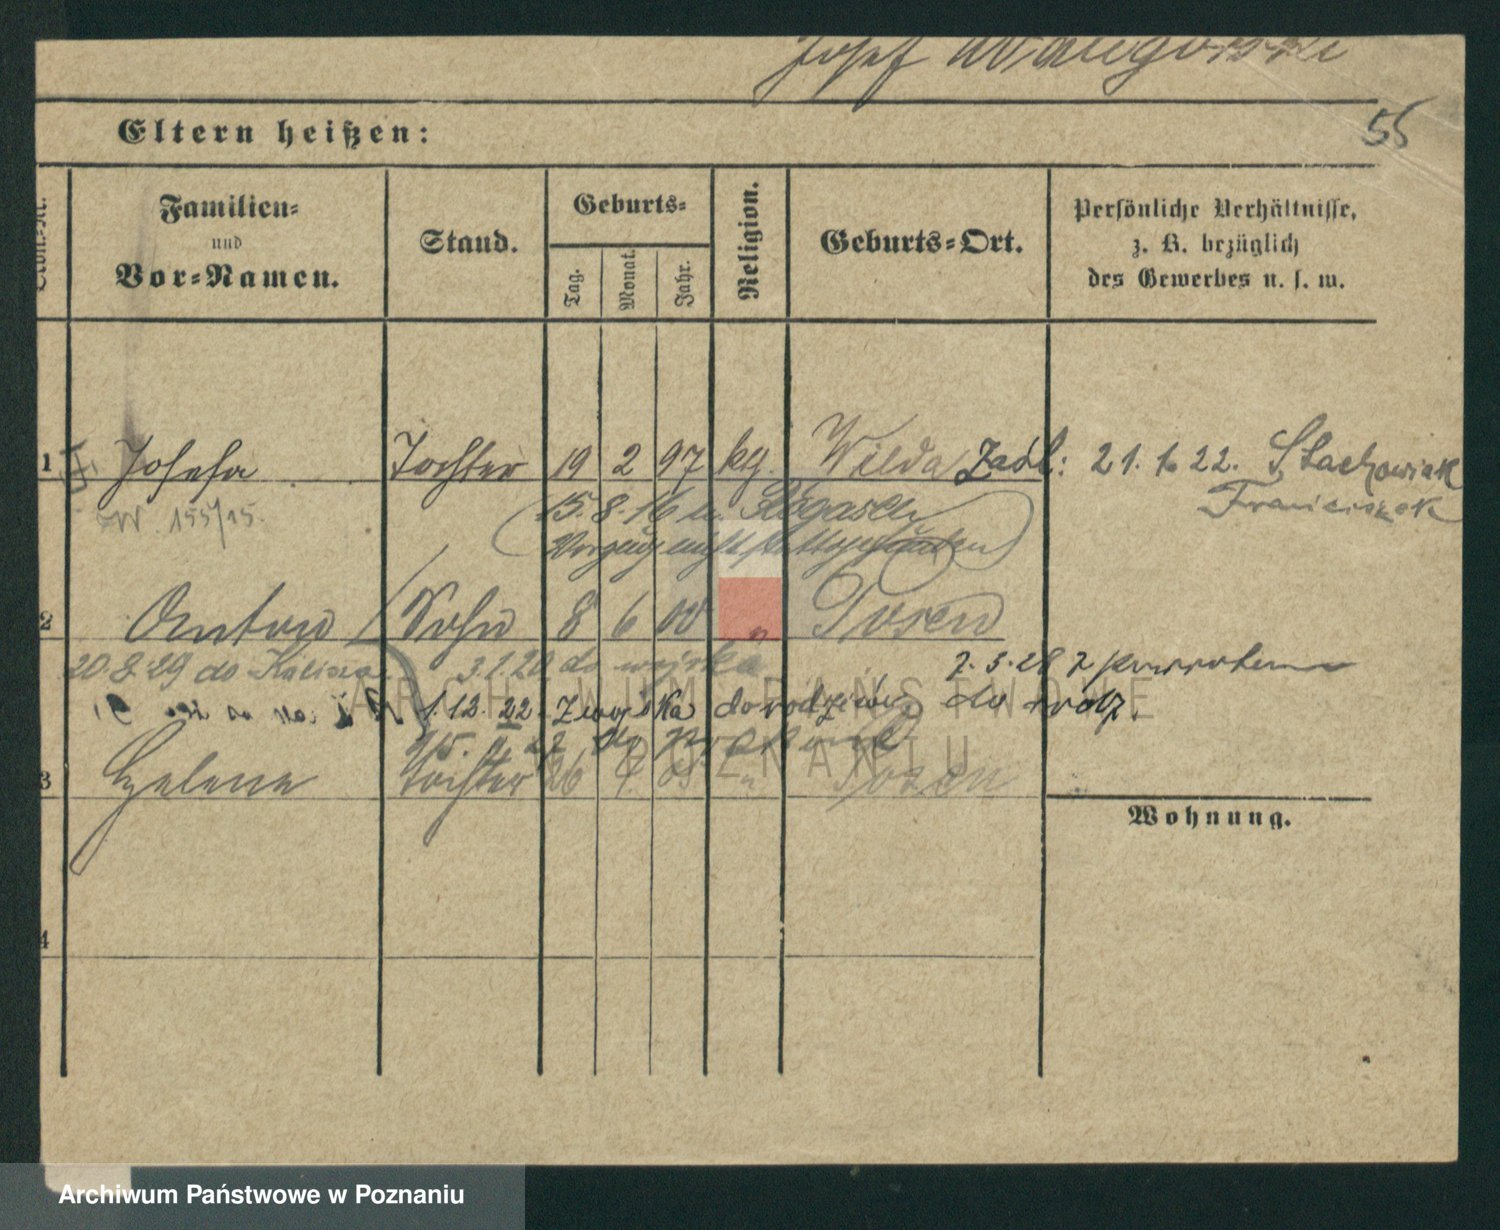 Josef
55
Eltern heißen:
Familien=
und
Vor=Namen.
Stand.
Geburts=
Tag.
Monat.
Jahr.
Religion.
Geburts=Ort.
Persönliche Verhältnisse,
z. B. bezüglich
des Gewerbes u. s. w.
1 Josefa Tochter 19 2 97 kth. Wilda Zaśl: 21. 1. 22. Stachowiak
Franciszek
155/15.
15. 8. 16
2 Anton Sohn 8 6 00 " Posen
20.8.29 do Kalisza 3.2.20 do wojska 7.3.28 z powrotem
1.12.22 Z wojska do rodziców do rodz.
3 Helene Tochter 26 Posen
Wohnung.
4
ARCHIWUM PAŃSTWOWE
W POZNANIU
Archiwum Państwowe w Poznaniu